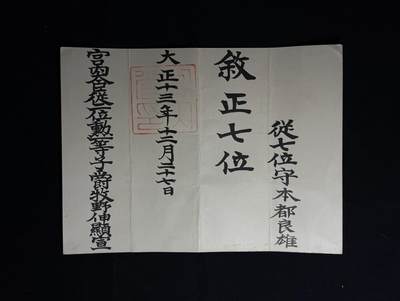 從七位守本都良雄
敘正七位
大正十三年十二月二十七日
宮內大臣從二位勳一等子爵牧野伸顯宣